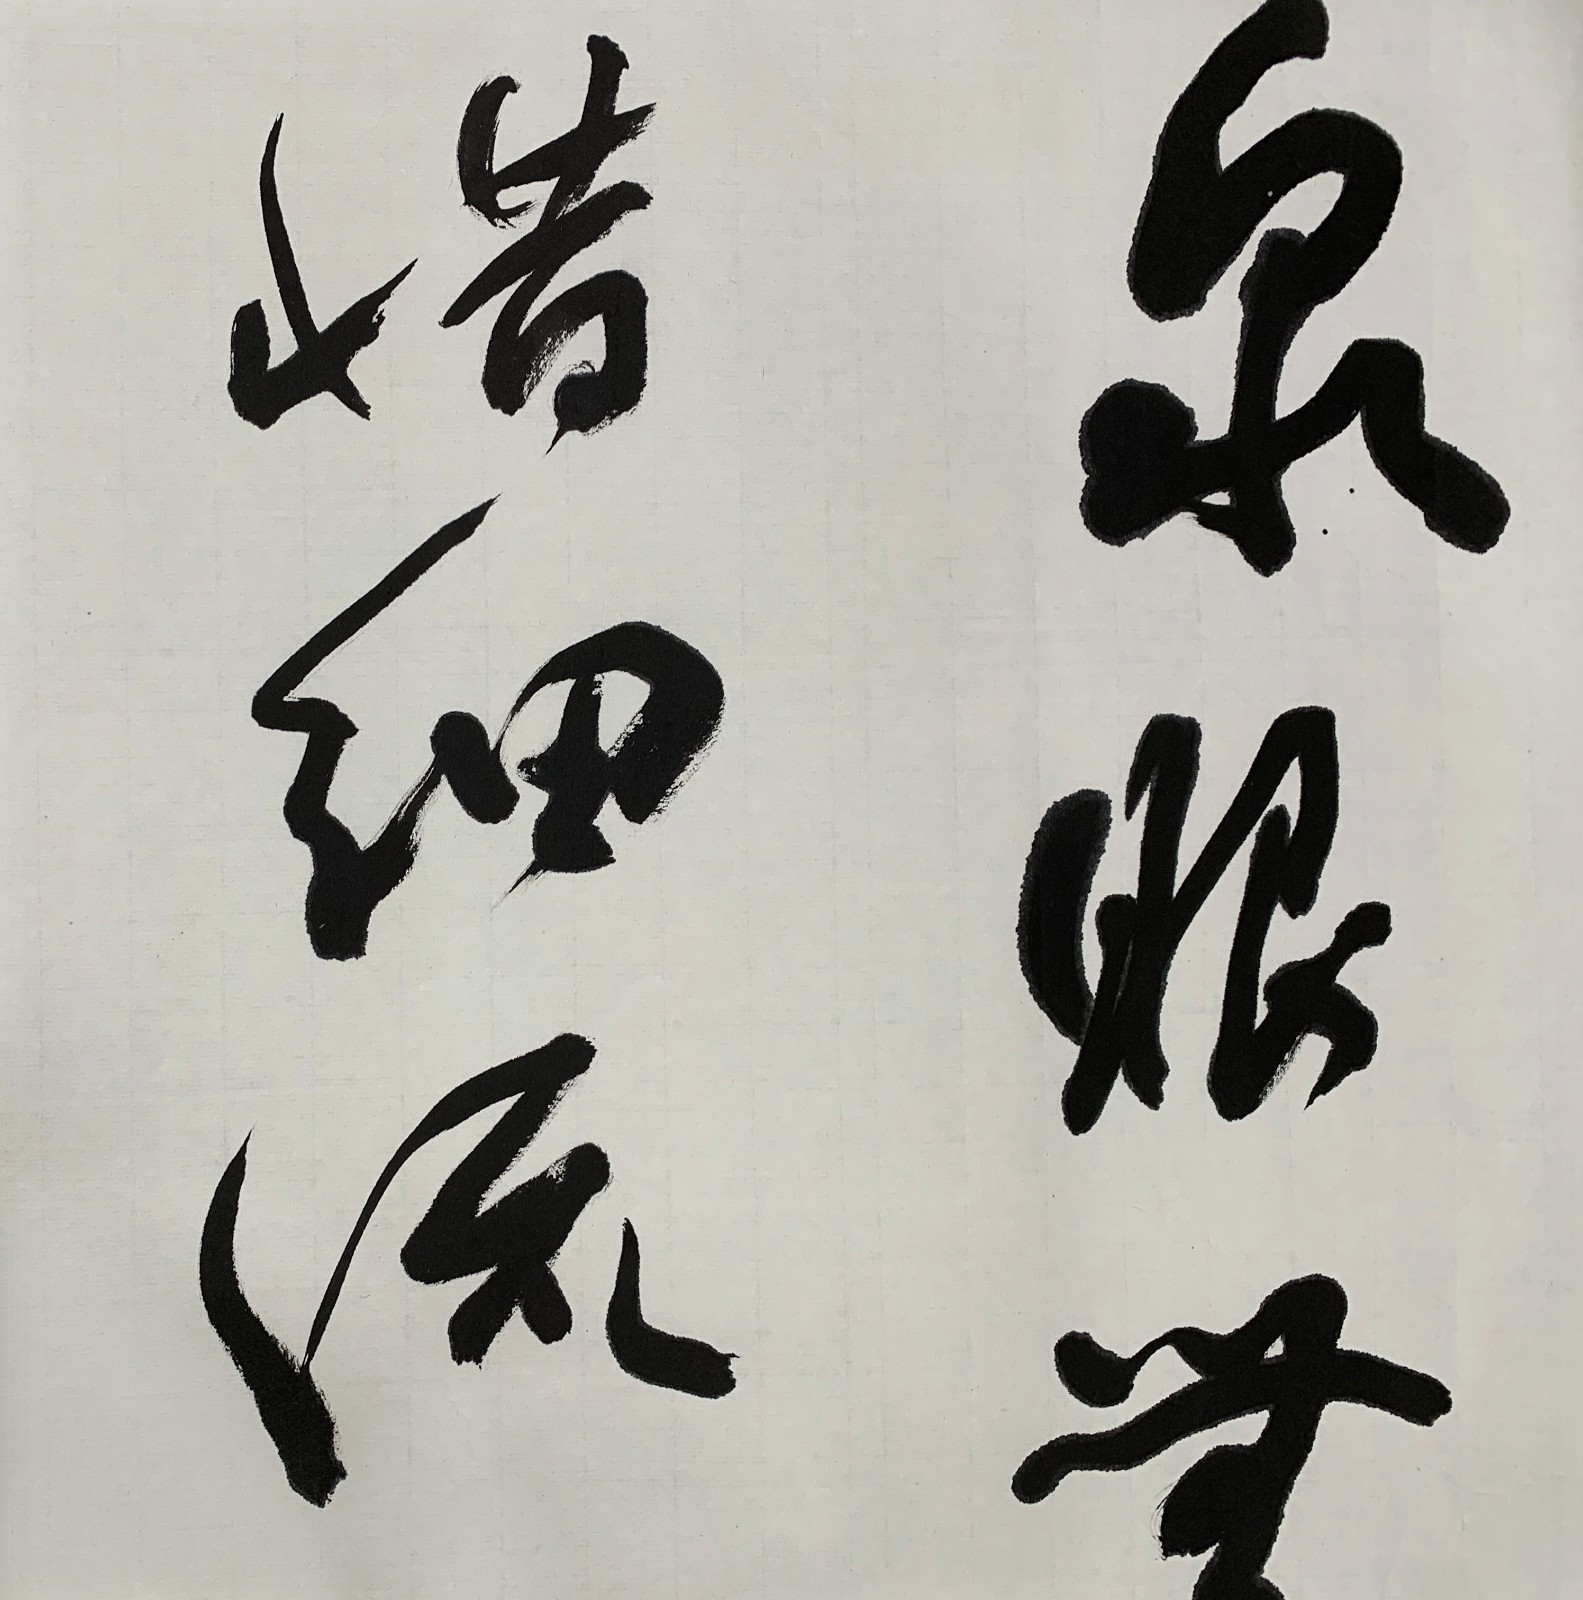 泉眼無
惜細流